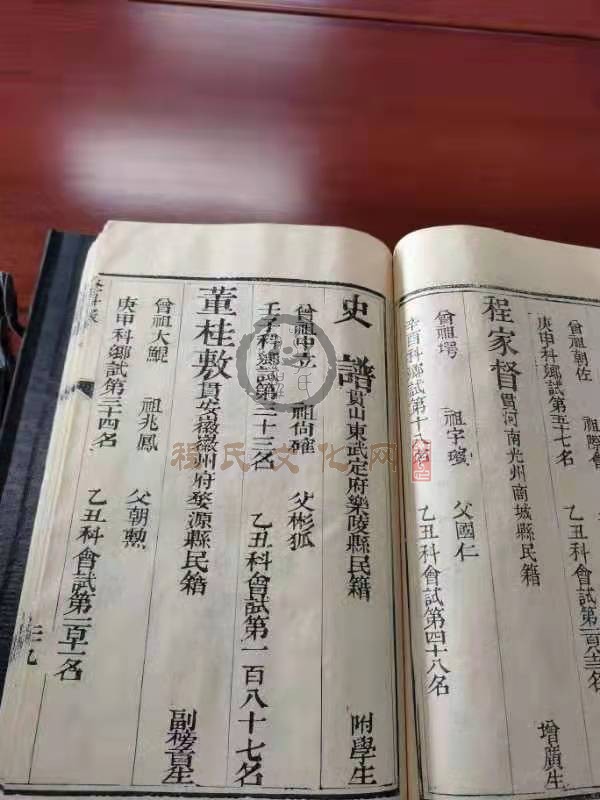 曾祖朝佐
庚申科鄉試第五十七名 乙丑科會試第
程家督 貫河南光州商城縣民籍 增廣生
曾祖堮 祖宇 父國仁
辛酉科鄉試第十名 乙丑科會試第四十八名
史譜 貫山東武定府樂陵縣民籍 附學生
曾祖中立 祖尚確 父彬狐
壬子科鄉試第三十三名 乙丑科會試第一百八十七名
董桂敷 貫安徽徽州府婺源縣民籍 副榜貢生
曾祖大鯤 祖兆鳳 父朝勲
庚申科鄉試第三十四名 乙丑科會試第一百十一名
程氏文化网